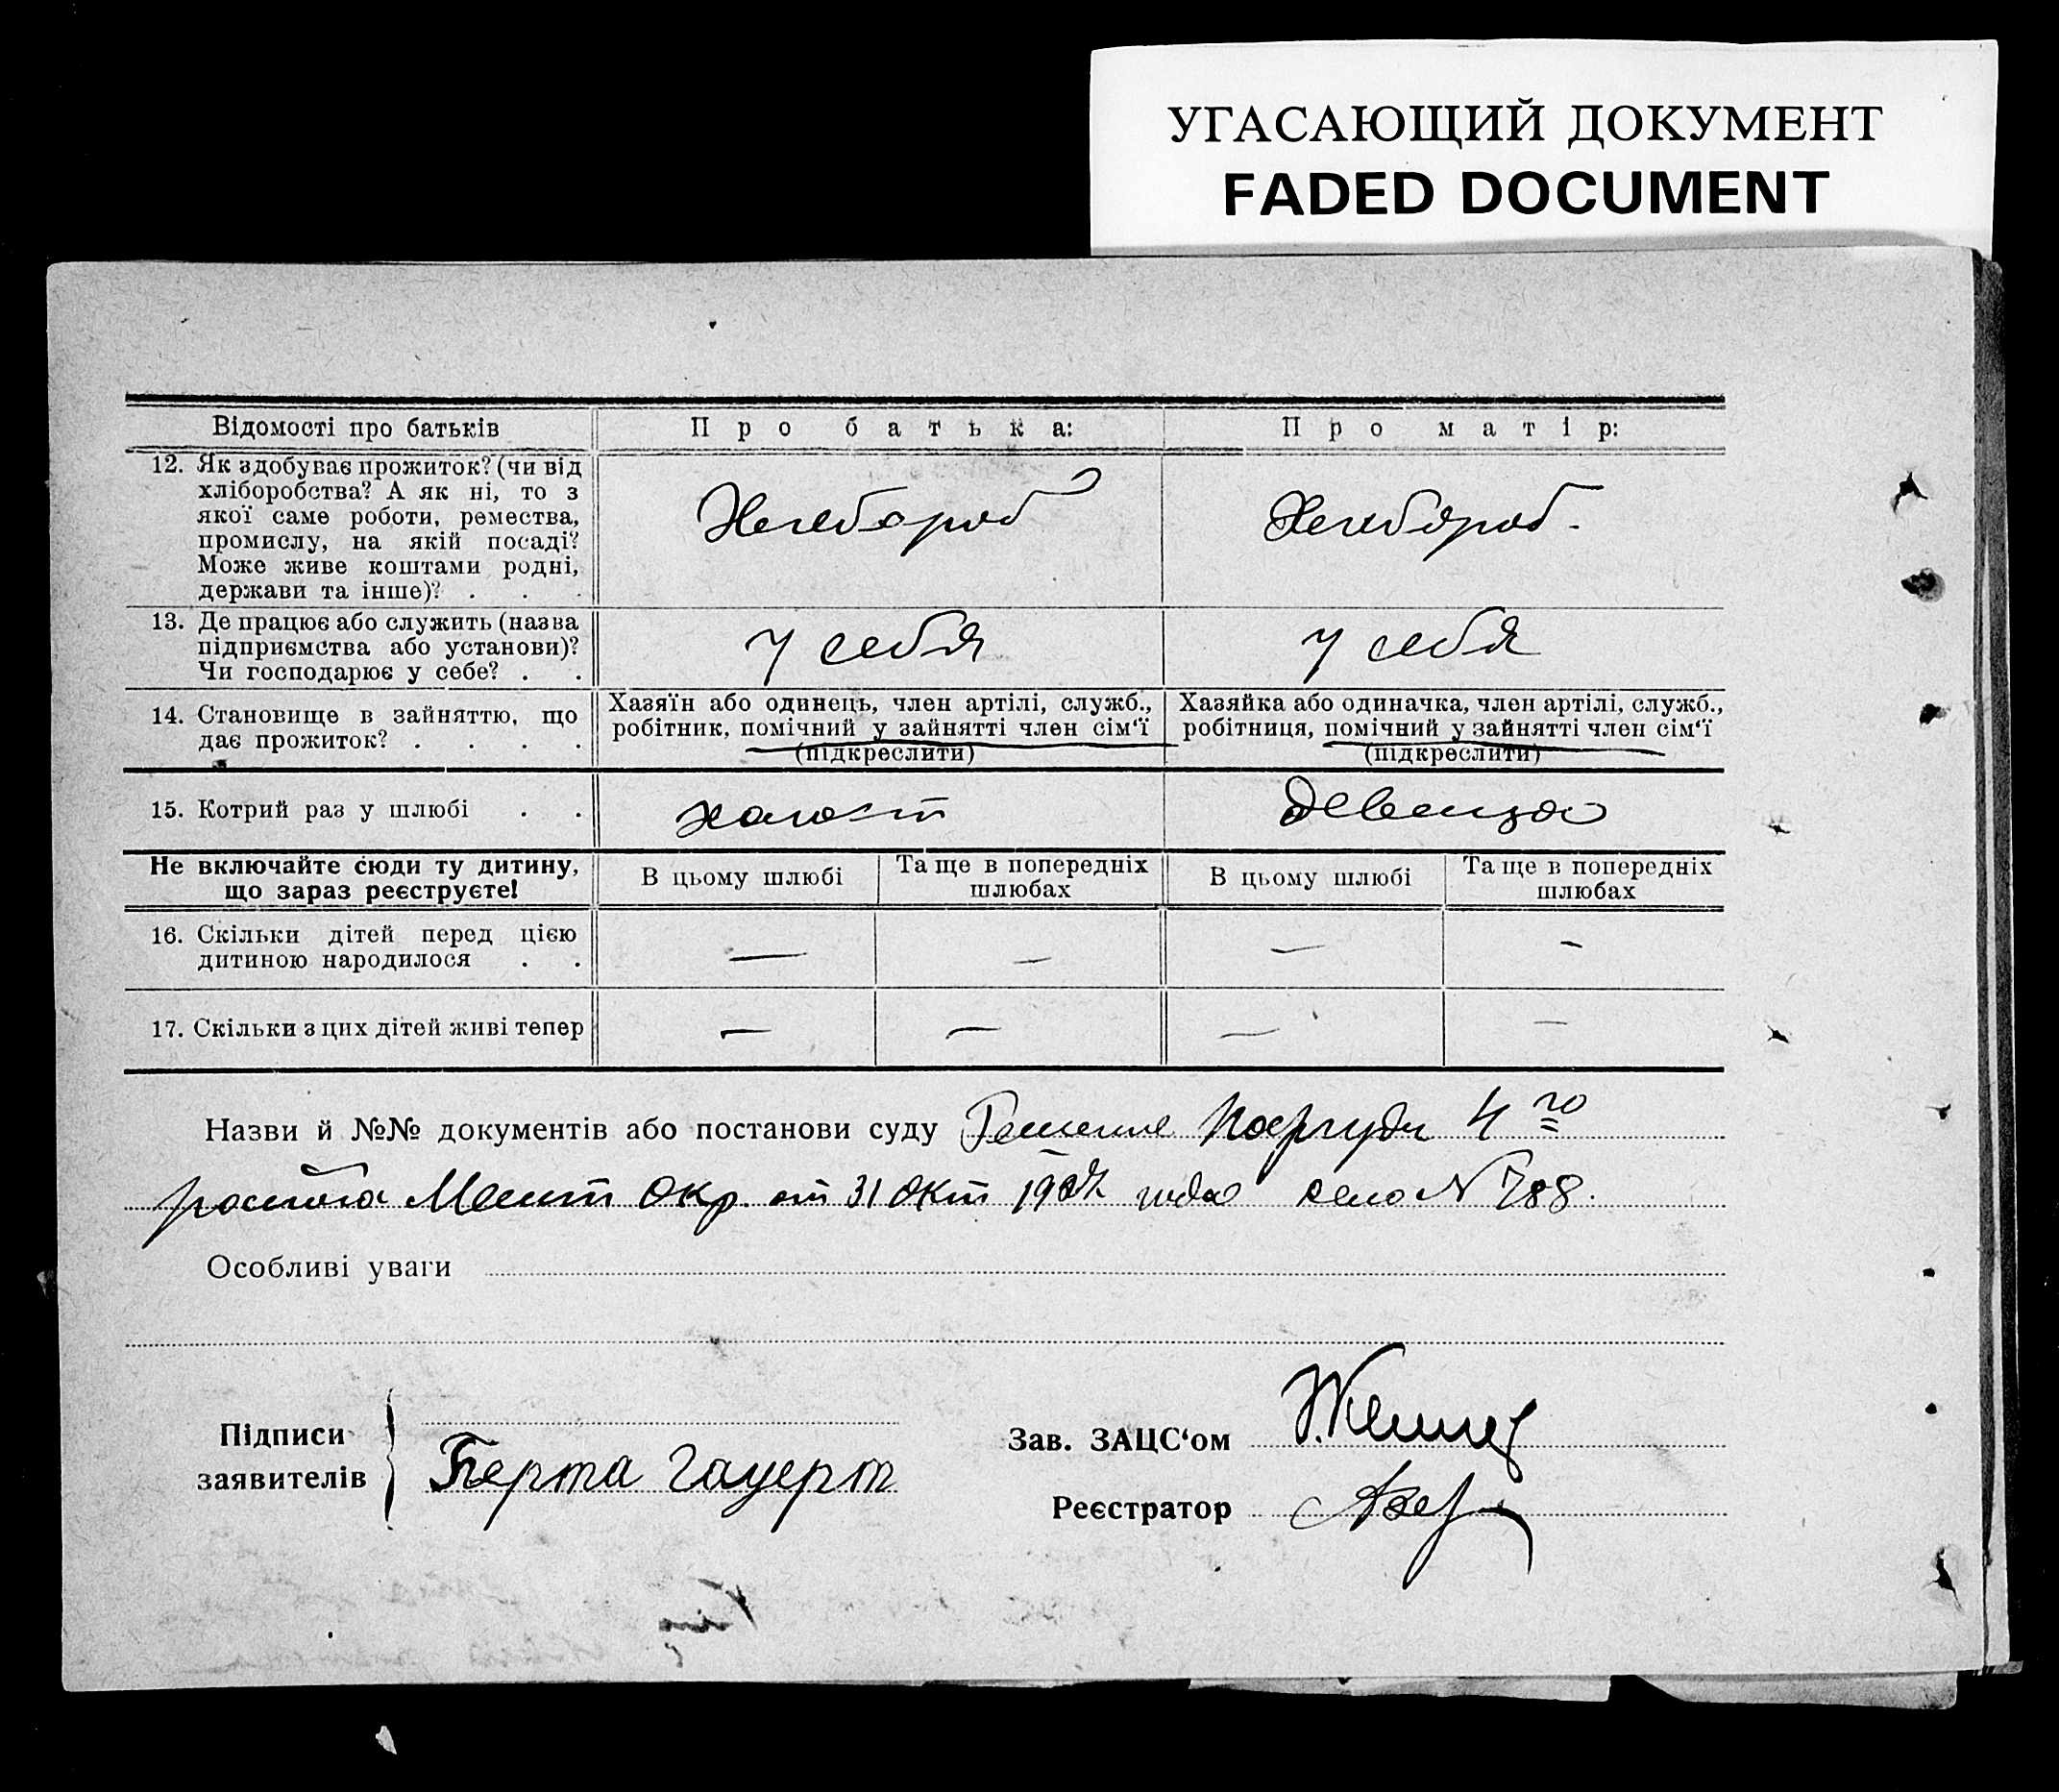 УГАСАЮЩИЙ ДОКУМЕНТ
FADED DOCUMENT
Відомості про батьків
Про батька:
Про матір:
12. Як здобуває прожиток? (чи від
хліборобства? А як ні, то з
якої саме роботи, ремества,
промислу, на якій посаді?
Може живе коштами родні,
держави та інше)? . . .
Хлебороб
Хлебороб.
13. Де працює або служить (назва
підприємства або установи)?
Чи господарює у себе? . .
У себя
У себя
14. Становище в зайняттю, що
дає прожиток? . . . .
Хазяїн або одинець, член артілі, служб.,
робітник, помічний у зайнятті член сім‘ї
(підкреслити)
Хазяйка або одиначка, член артілі, служб.,
робітниця, помічний у зайнятті член сім‘ї
(підкреслити)
15. Котрий раз у шлюбі . .
холост
девица
Не включайте сюди ту дитину,
що зараз реєструєте!
В цьому шлюбі
Та ще в попередніх
шлюбах
В цьому шлюбі
Та ще в попередніх
шлюбах
16. Скільки дітей перед цією
дитиною народилося . .
— — — —
17. Скільки з цих дітей живі тепер
— — — —
Назви й №№ документів або постанови суду Решение Нарсуда 4 го
Окр. от 31 Окт года дело N 788.
Особливі уваги
Підписи
заявителів
Берта Гауерт
Зав. ЗАЦС‘ом
Реєстратор